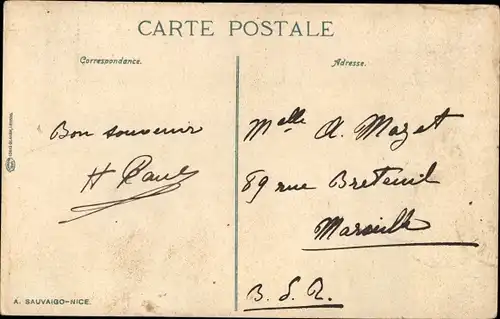 CARTE POSTALE
Correspondance.
Adresse.
Bon souvenir
H Paul
Melle A. Mazet
89 rue Breteuil
Marseille
B. d. R.
A. SAUVAIGO-NICE.